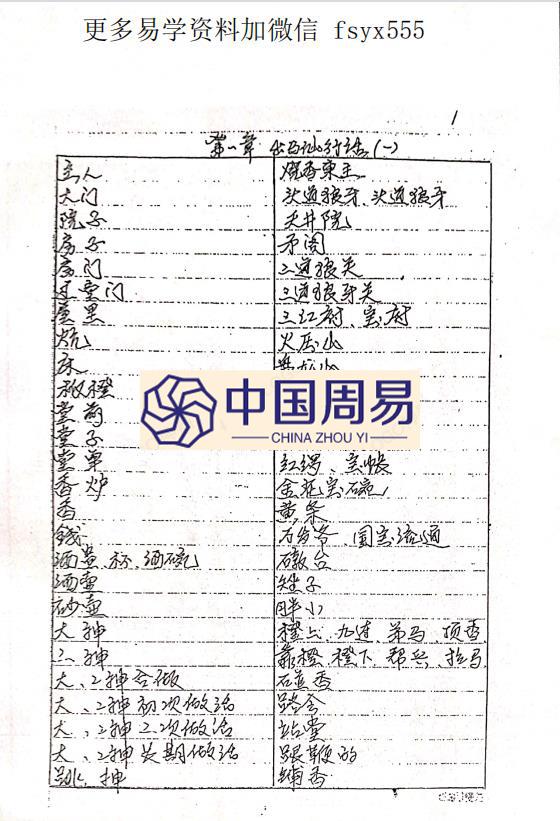 更多易学资料加微信 fsyx555
1
第一章 出马仙行话(一)
主人 烧香东主
大门 头道狼牙、头道狼牙
院子 天井院
房子
房门 二道狼关
过堂门 三道狼牙关
屋里 三江府、宝府
炕 火石山
床
板橙
堂前
中国周易
CHINA ZHOU YI
堂子
堂单 红绸、宝帐
香炉 金花宝碗
香 黄条
钱 国宝流通
酒盅、杯、酒碗 礅台
酒壶 矬子
砂壶 胖小
大神 橙上、九连、弟马、顶香
二神 靠橙、橙下、帮兵、拉马
大、二神合做 碰香
大、二神初次做活
大、二神二次做活 站堂
大、二神长期做活 跟鞭的
跳、神